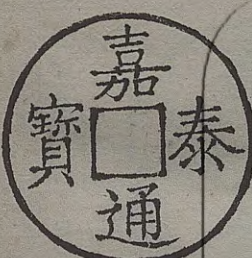 嘉泰通寶